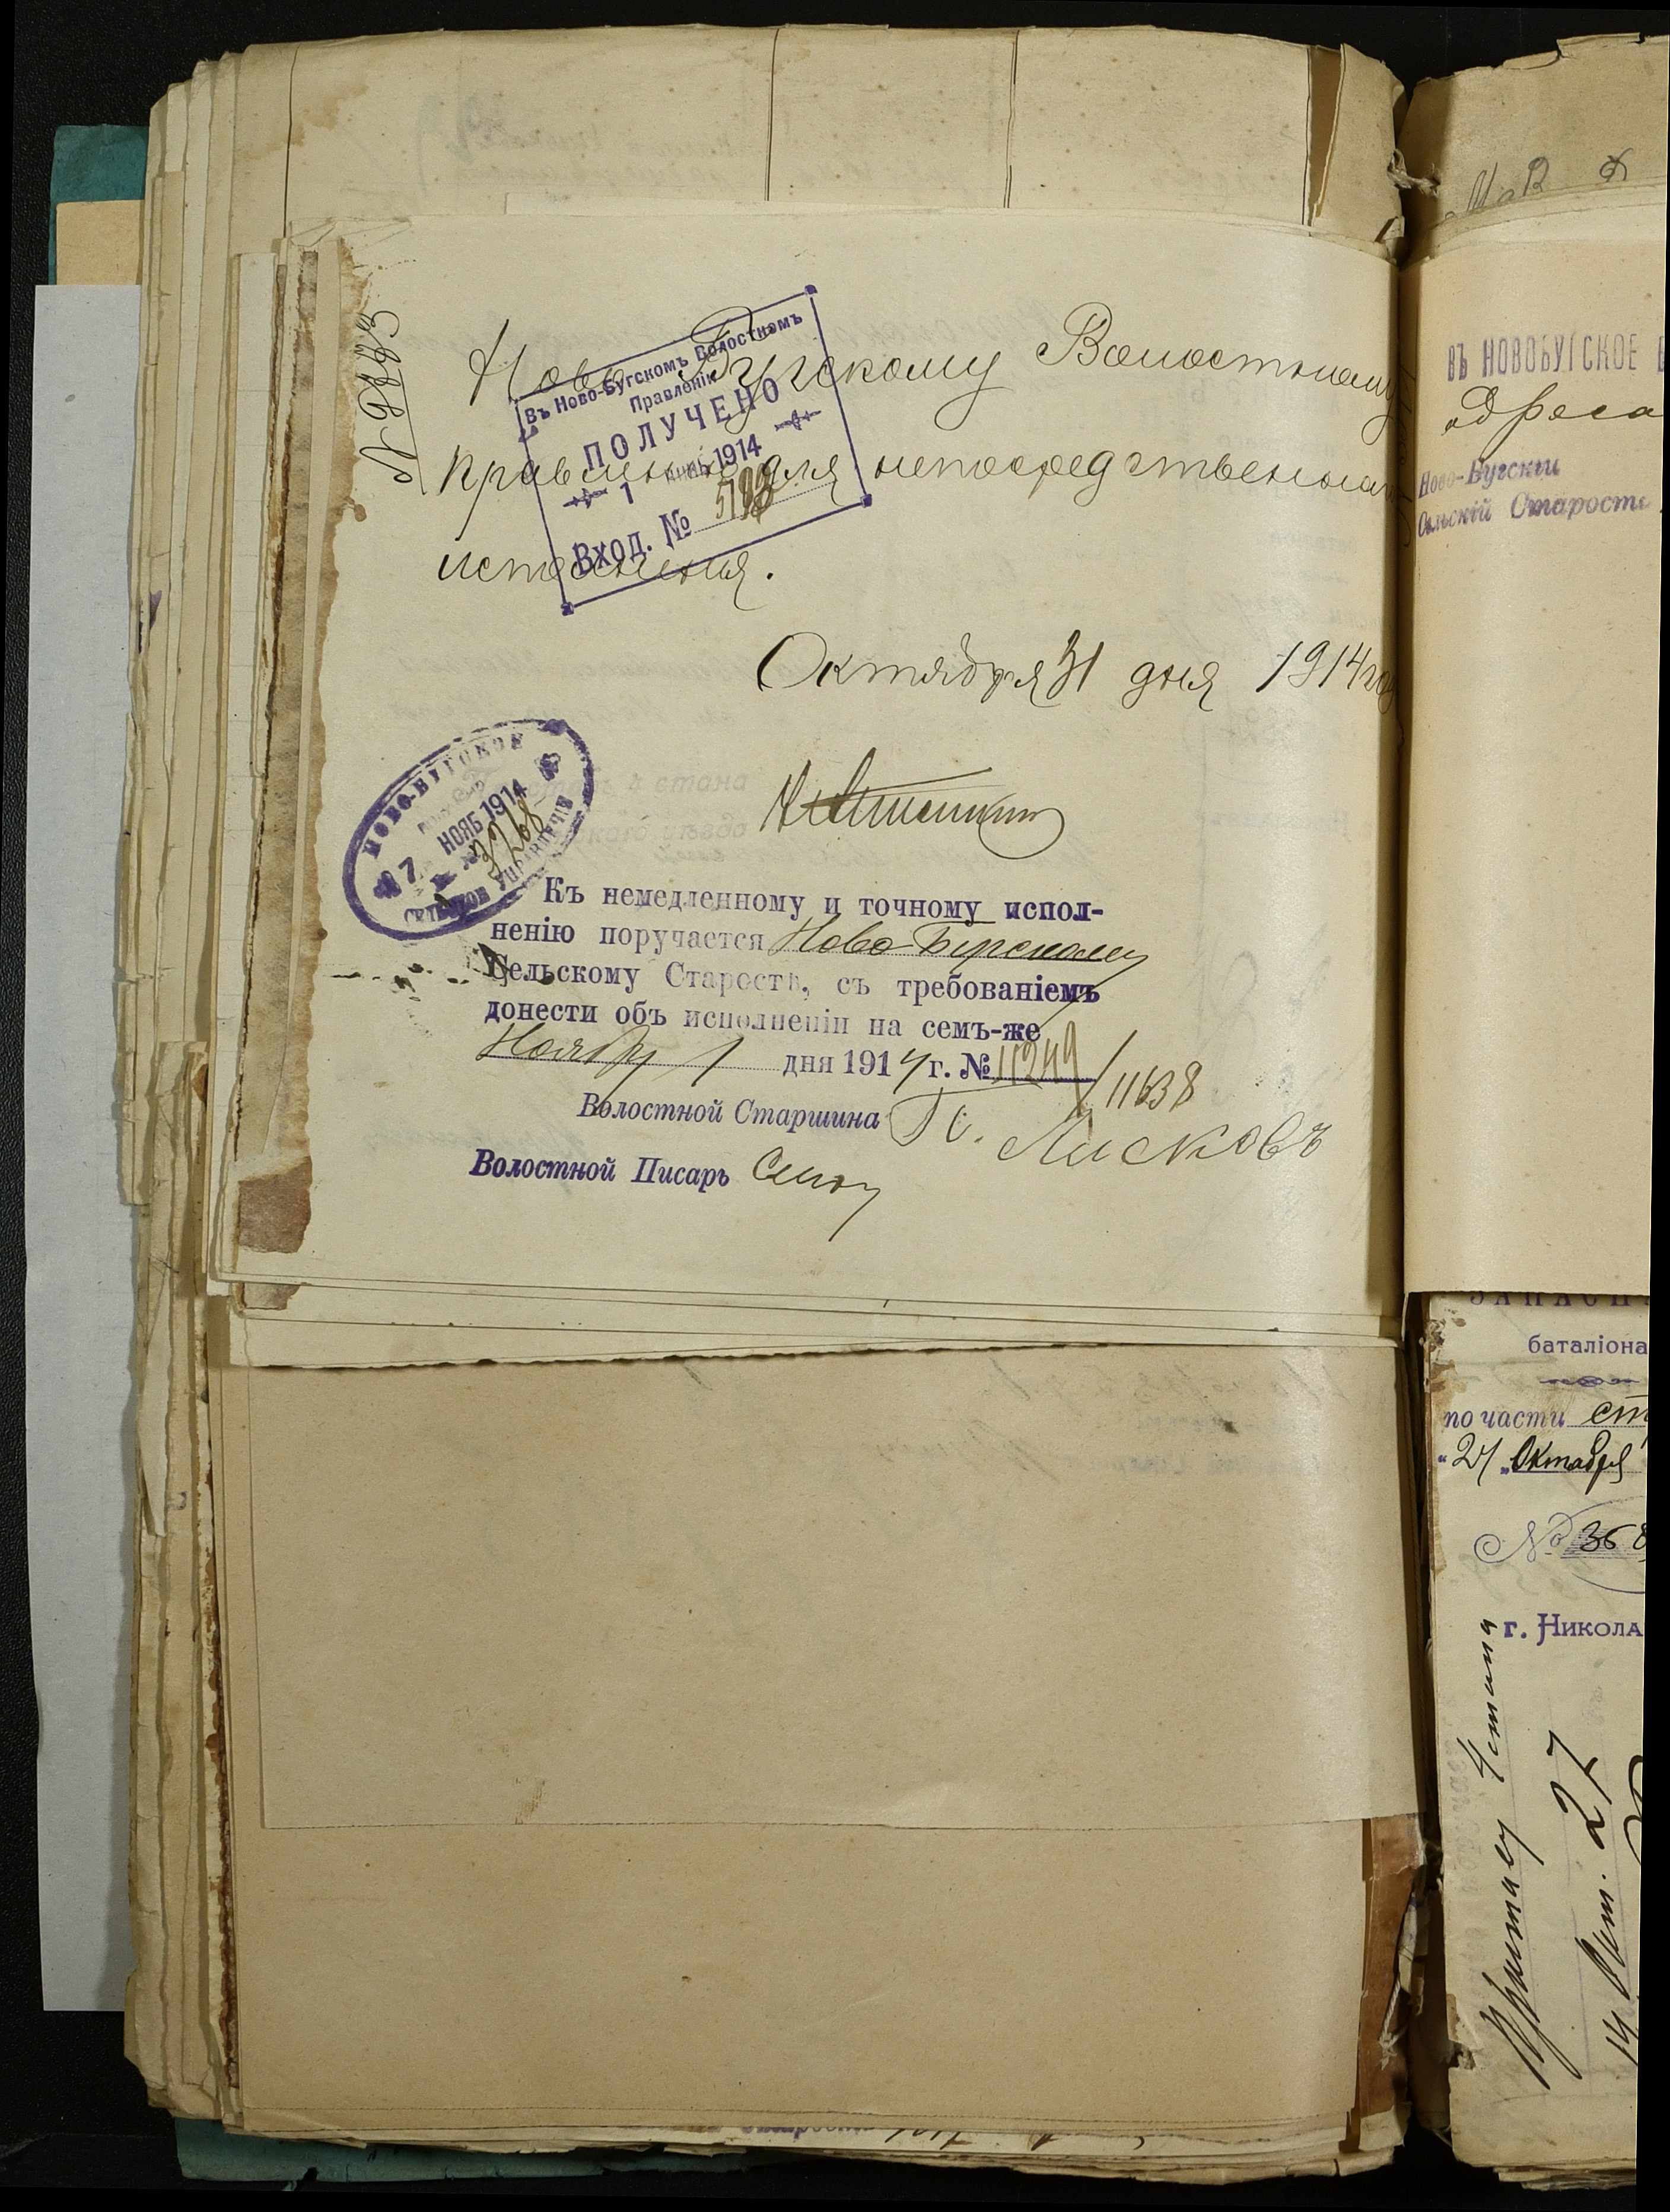 Ново Бугскому Волостному
Правленію для непосредственнаго
исполненія.
Въ Ново-Бугскомъ Волостномъ
Правленіи
ПОЛУЧЕНО
1 1914
Вход. №
Октября 31 дня 1914 го
НОВО-БУГСКОЕ
7 НОЯБ 1914
№ 3268
СЕЛЬСКОЕ УПРАВЛЕНІЕ
Къ немедленному и точному испол-
ненію поручается Ново-Бугскому
Сельскому Старостѣ, съ требованіемъ
донести объ исполненіи на семъ-же
Ноября 1 дня 1914 г. № 11249/11638
Волостной Старшина П. Лисковъ
Волостной Писарь
ВЪ НОВОБУГСКОЕ
адреса
Ново-Бугскій
Сельскій Староста
баталіона
по части ст
"24" Октября
№ 368
г. Никола
Приставу 4 стана
27